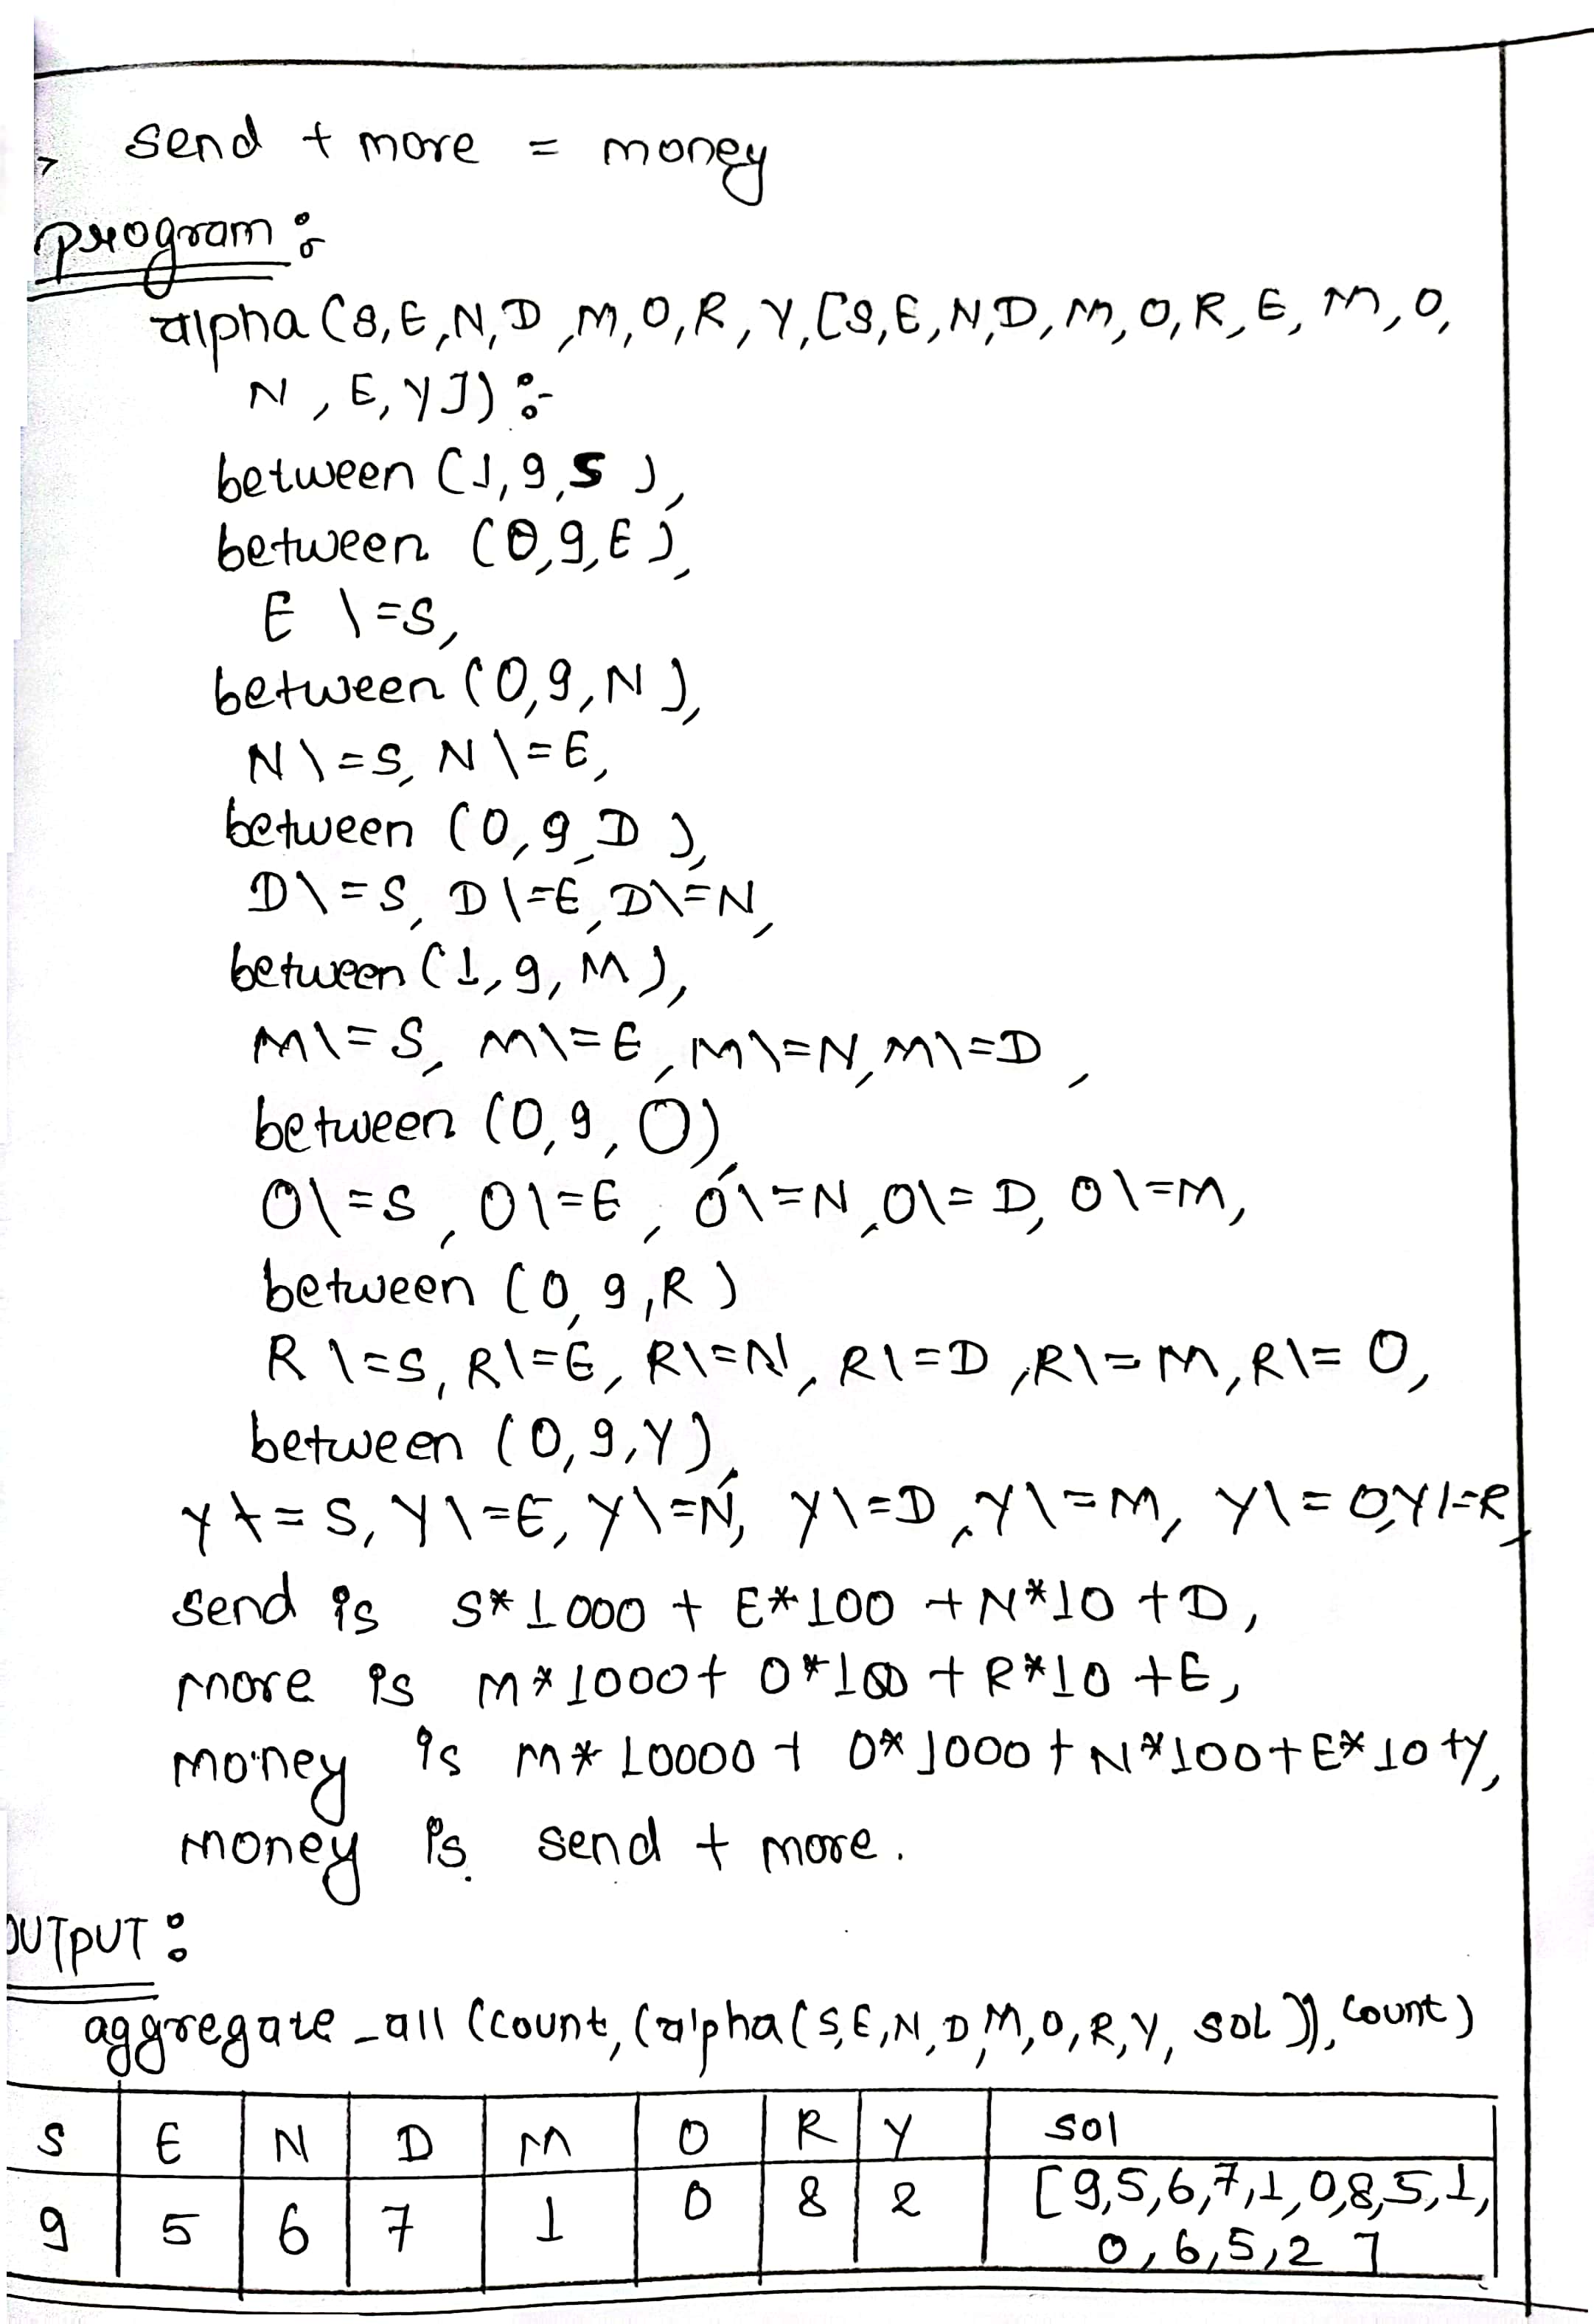 send + more = money
program :
alpha (S,E,N,D,M,O,R,Y,[S,E,N,D,M,O,R,E,M,O,
N,E,Y]) :-
between (1,9,S),
between (0,9,E),
E \=S,
between (0,9,N),
N\=S, N\=E,
between (0,9,D),
D\=S, D\=E, D\=N,
between (1,9,M),
M\=S, M\=E, M\=N, M\=D,
between (0,9,O),
O\=S, O\=E, O\=N, O\=D, O\=M,
between (0,9,R)
R \=S, R\=E, R\=N, R\=D, R\=M, R\=O,
between (0,9,Y),
Y\=S, Y\=E, Y\=N, Y\=D, Y\=M, Y\=O, Y\=R,
send is S*1000 + E*100 + N*10 + D,
more is M*1000 + O*100 + R*10 + E,
money is M*10000 + O*1000 + N*100 + E*10 + Y,
money is send + more.
OUTPUT :
aggregate_all (count, (alpha (S,E,N,D,M,O,R,Y, sol)), count)
S E N D M O R Y sol
9 5 6 7 1 0 8 2 [9,5,6,7,1,0,8,5,1,
0,6,5,2]